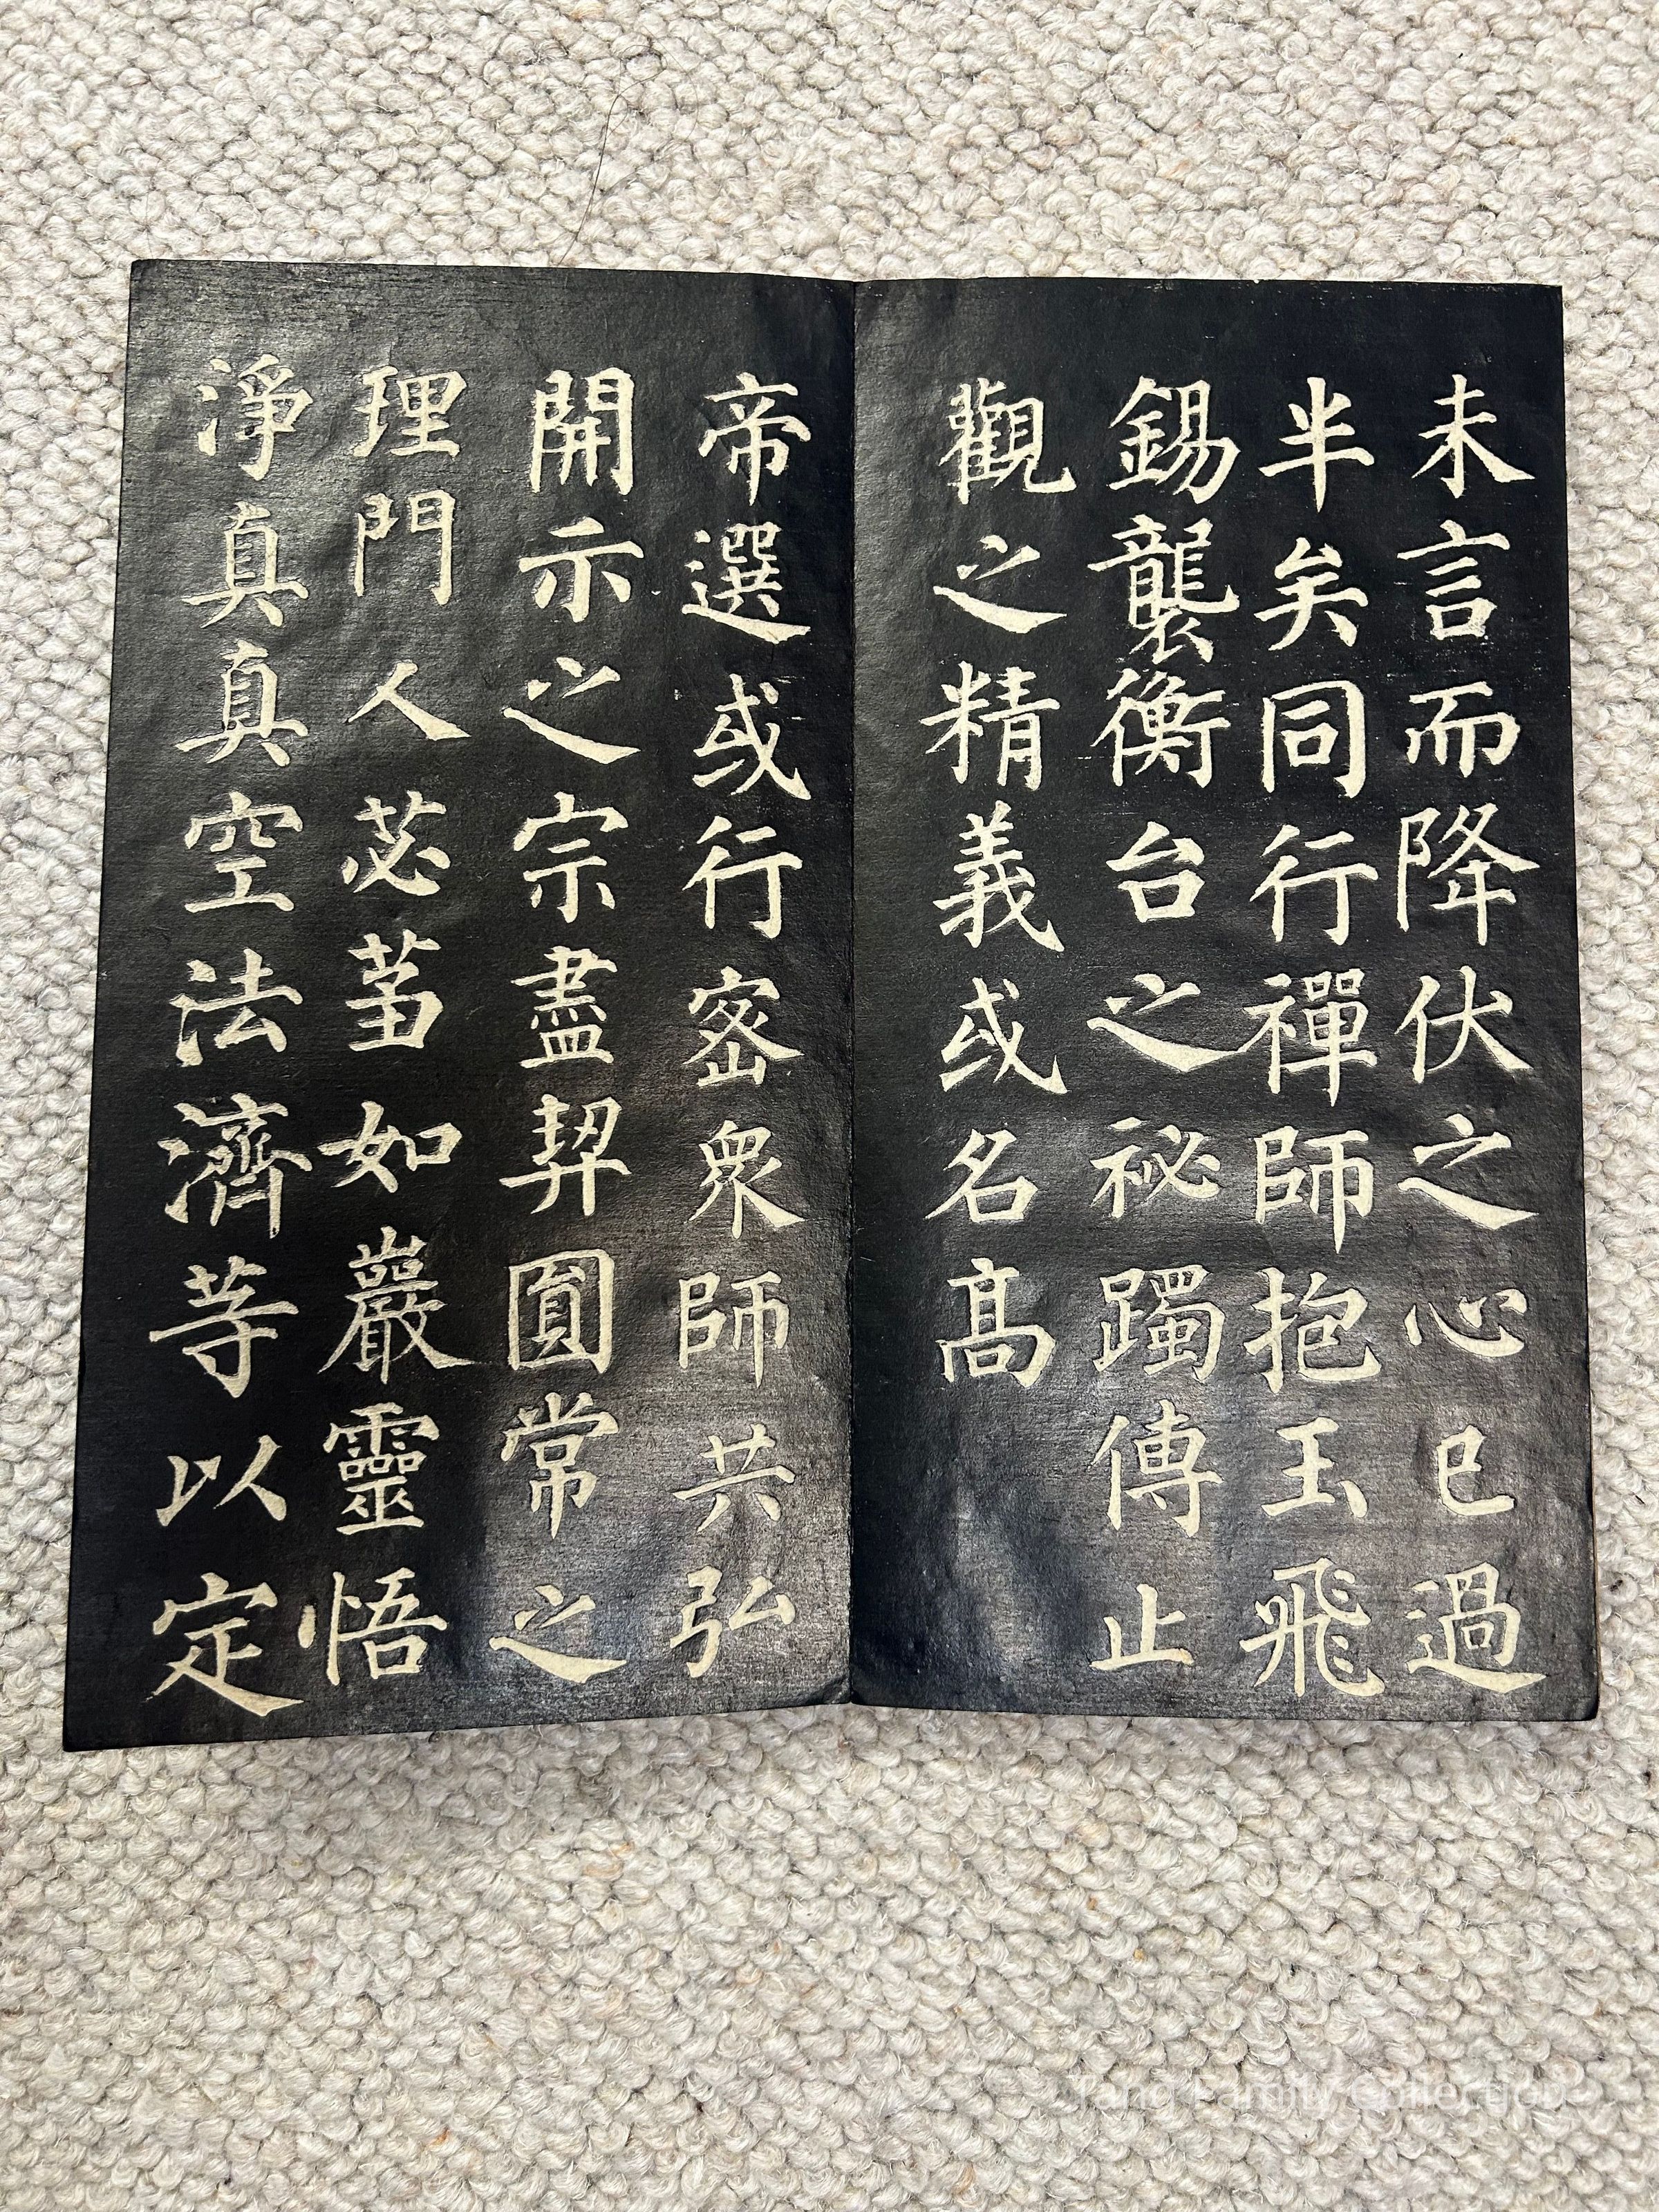 未言而降伏之心已過
半矣同行禪師抱玉飛
錫襲衡台之祕躅傳止
觀之精義或名高
帝選或行密眾師共弘
開示之宗盡契圓常之
理門人苾蒭如巖靈悟
淨真真空法濟等以定
Tang Family Collection